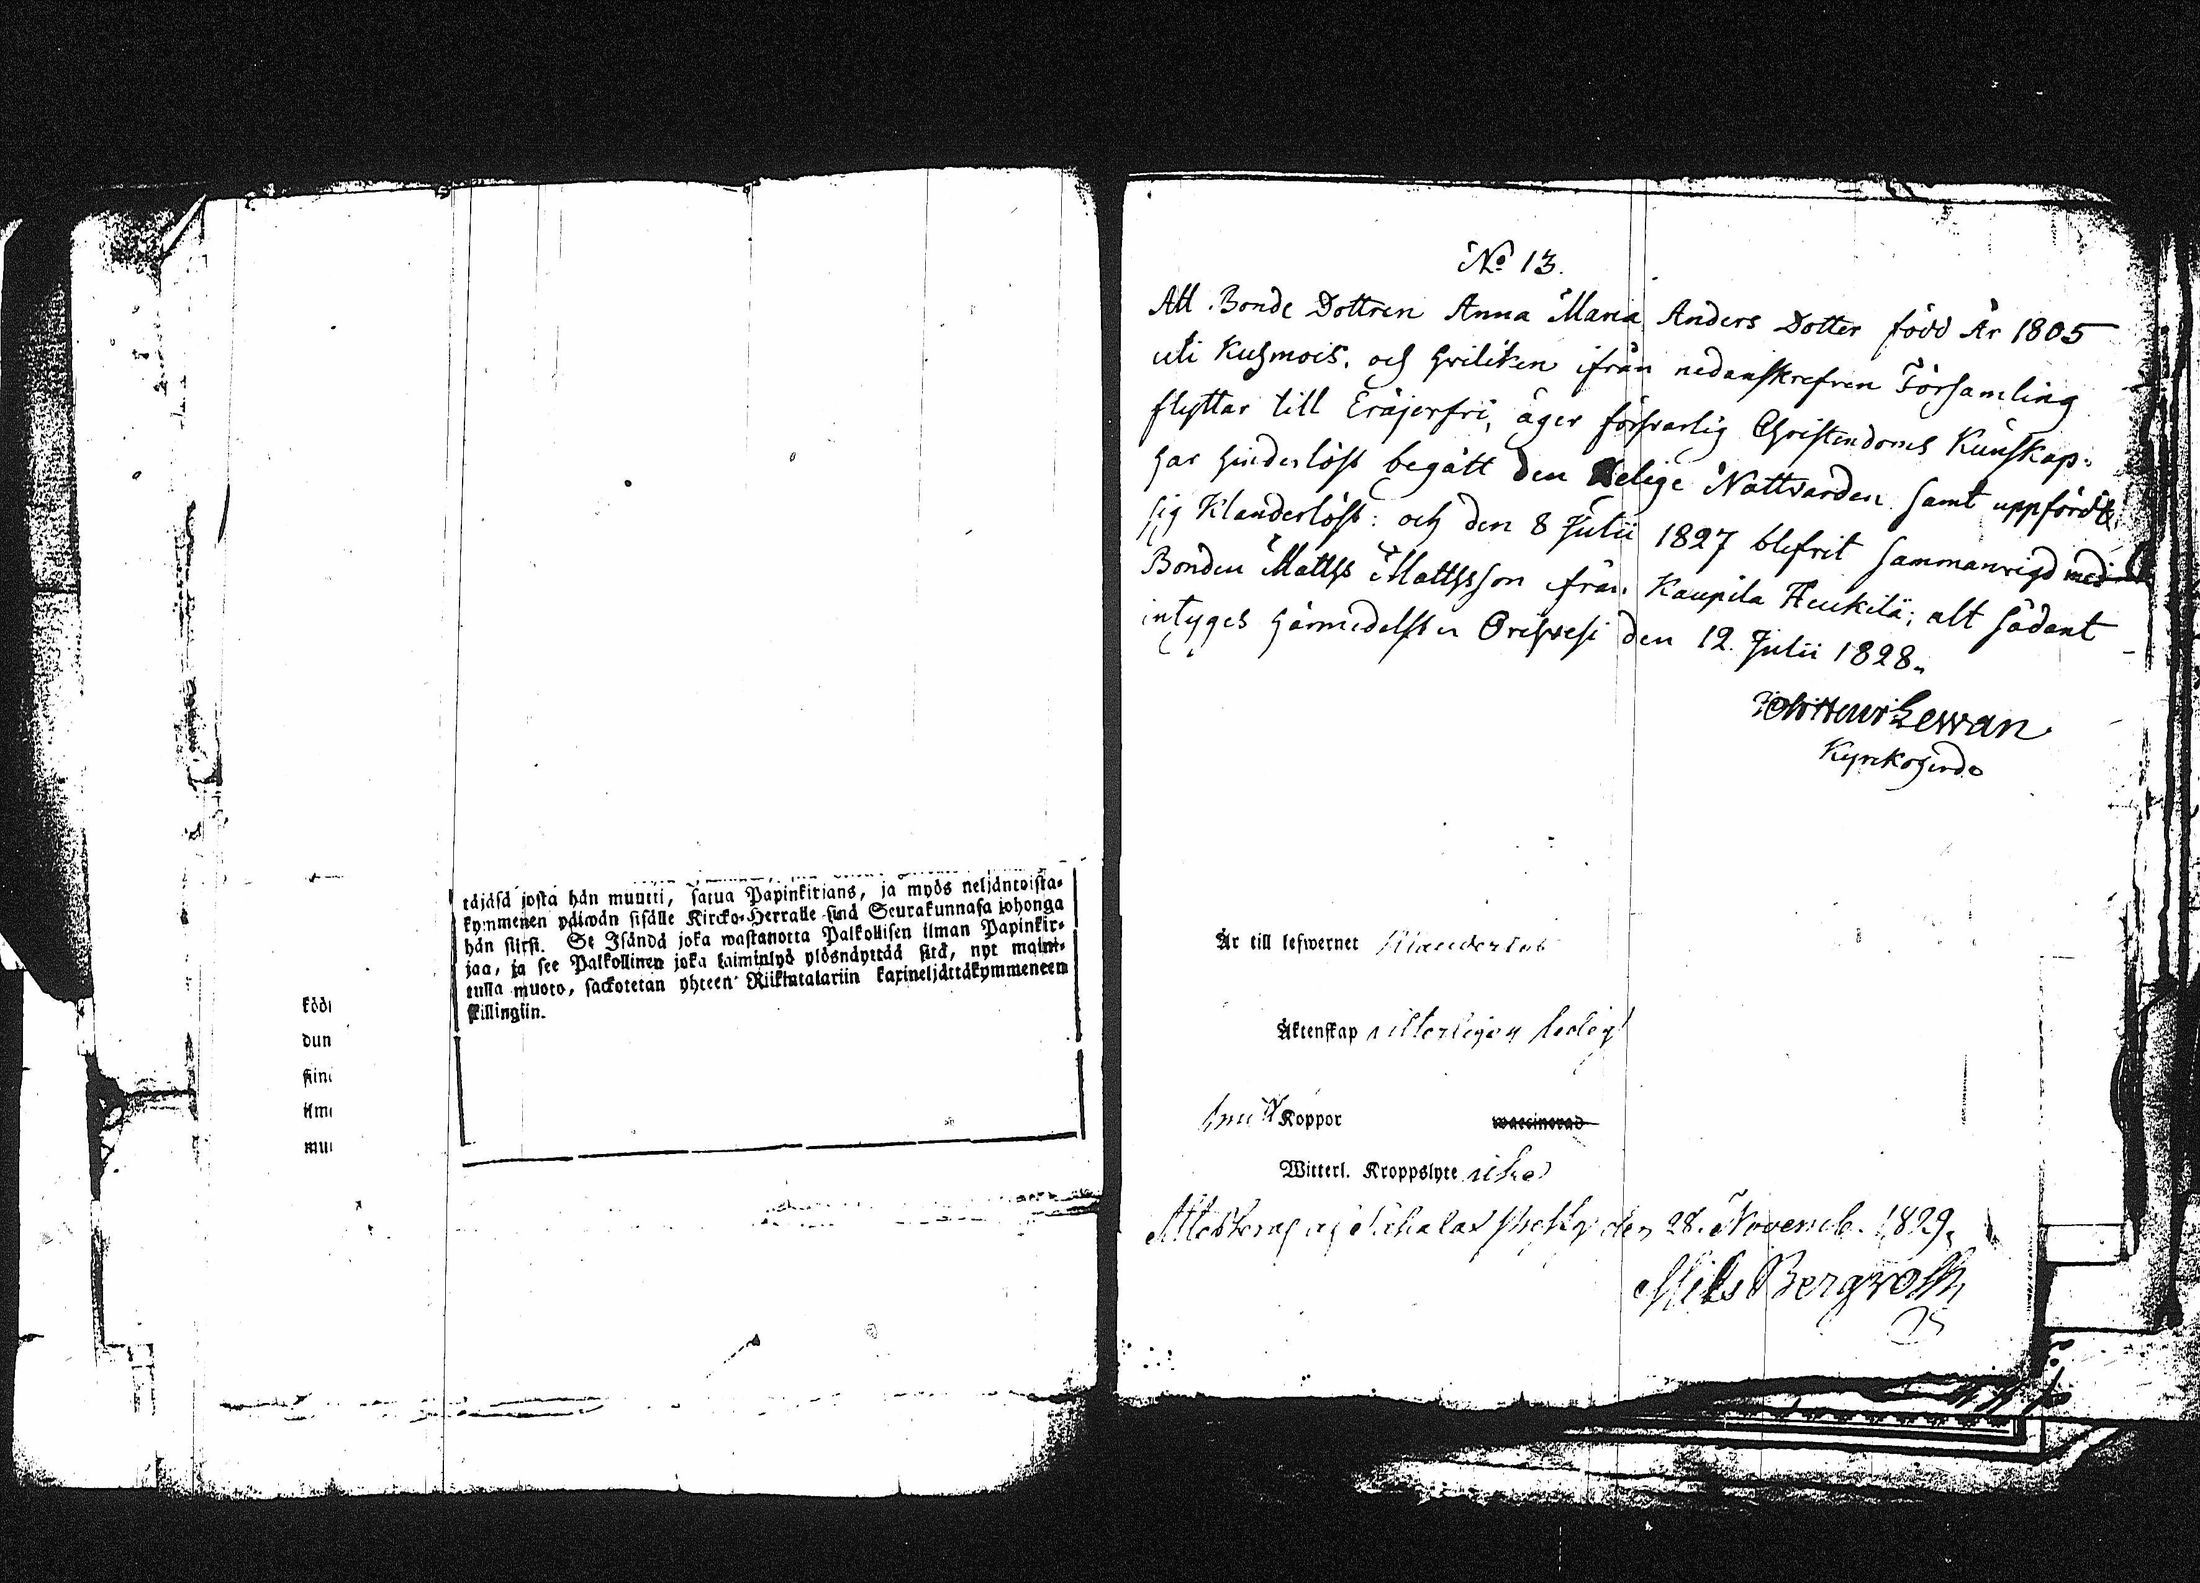 täjäsä josta hän muutti, satua Papinkirjans, ja myös neljäntoista-
kymmenen päiwän sisälle Kircko-Herralle sinä Seurakunnasa johonga
hän siirsi. Se Isändä joka wastanotta Palkollisen ilman Papinkir-
jaa, ja see Palkollinen joka laiminlyö ylösnäyttää sitä, nyt maini-
tulla muoto, sackotetan yhteen Riikintalariin kaxineljättäkymmeneen
skillingiin.
köö
dun
kin
ilm
mu
No 13.
Att Bonde Dottren Anna Maria Anders Dotter född År 1805
uti Kuhmois, och hvilken ifrån nedanskrefven Församling
flyttar till Eräjerfvi, äger försvarlig Christendoms Kunskap,
har hinderlöst begått den Helige Nattvarden samt uppfördt
sig Klanderlöst: och den 8 Julii 1827 blefvit sammanvigd med
Bonden Matths Mattsson från Kaupila Heukilä; alt sådant
intyges härmedelst Orihvesi den 12. Julii 1828.
Lewan
Kyrkoherde
Är till lefwernet Klanderlös
Äktenskap witterligen ledig
haft Koppor waccinerad
Witterl. Kroppslyte
den 28. Novemb. 1829.
Nils Bergroth